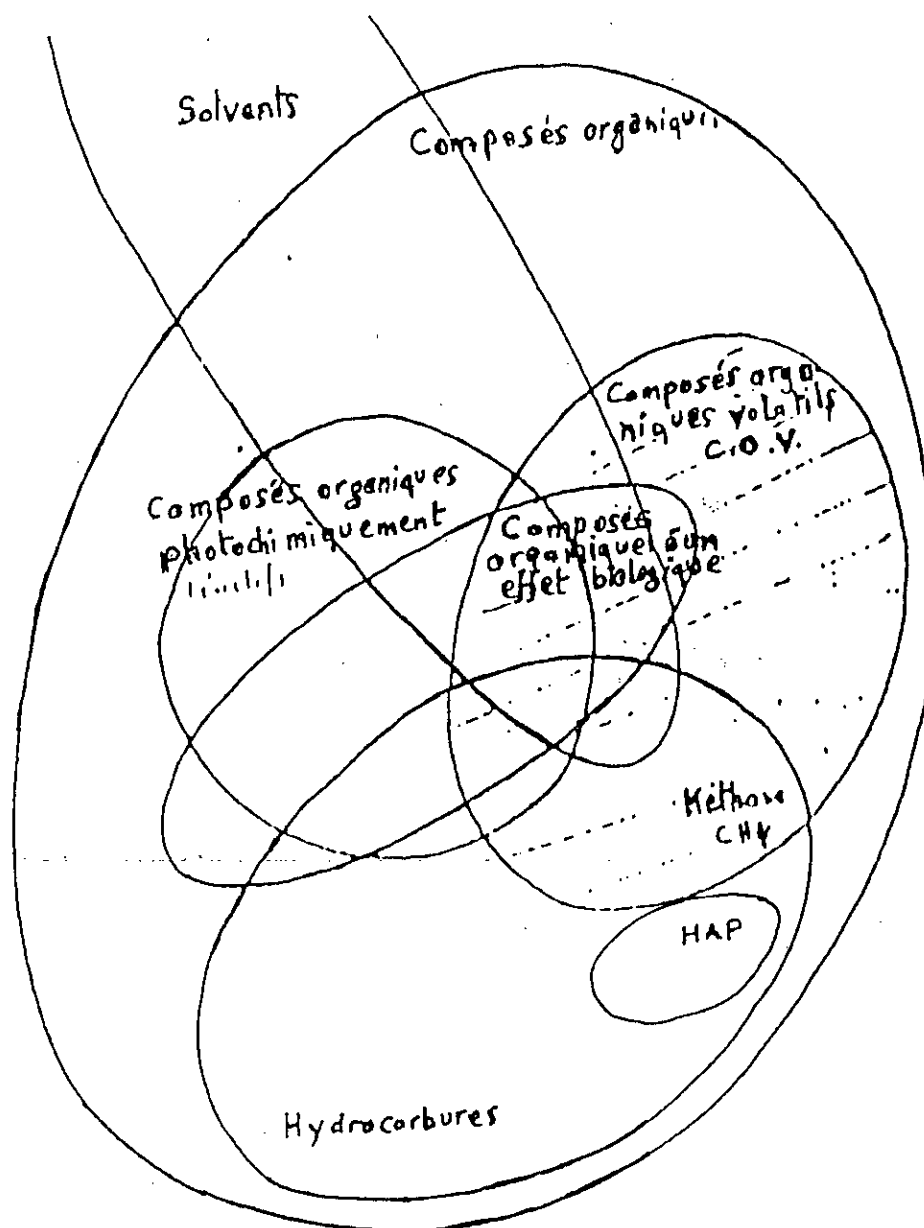 Solvants
Composés organiqu
Composés orga-
niques volatils
C.O.V.
Composés organiques
photochimiquement
Composés
organiques
effet biologique
Méthane
CH4
HAP
Hydrocarbures